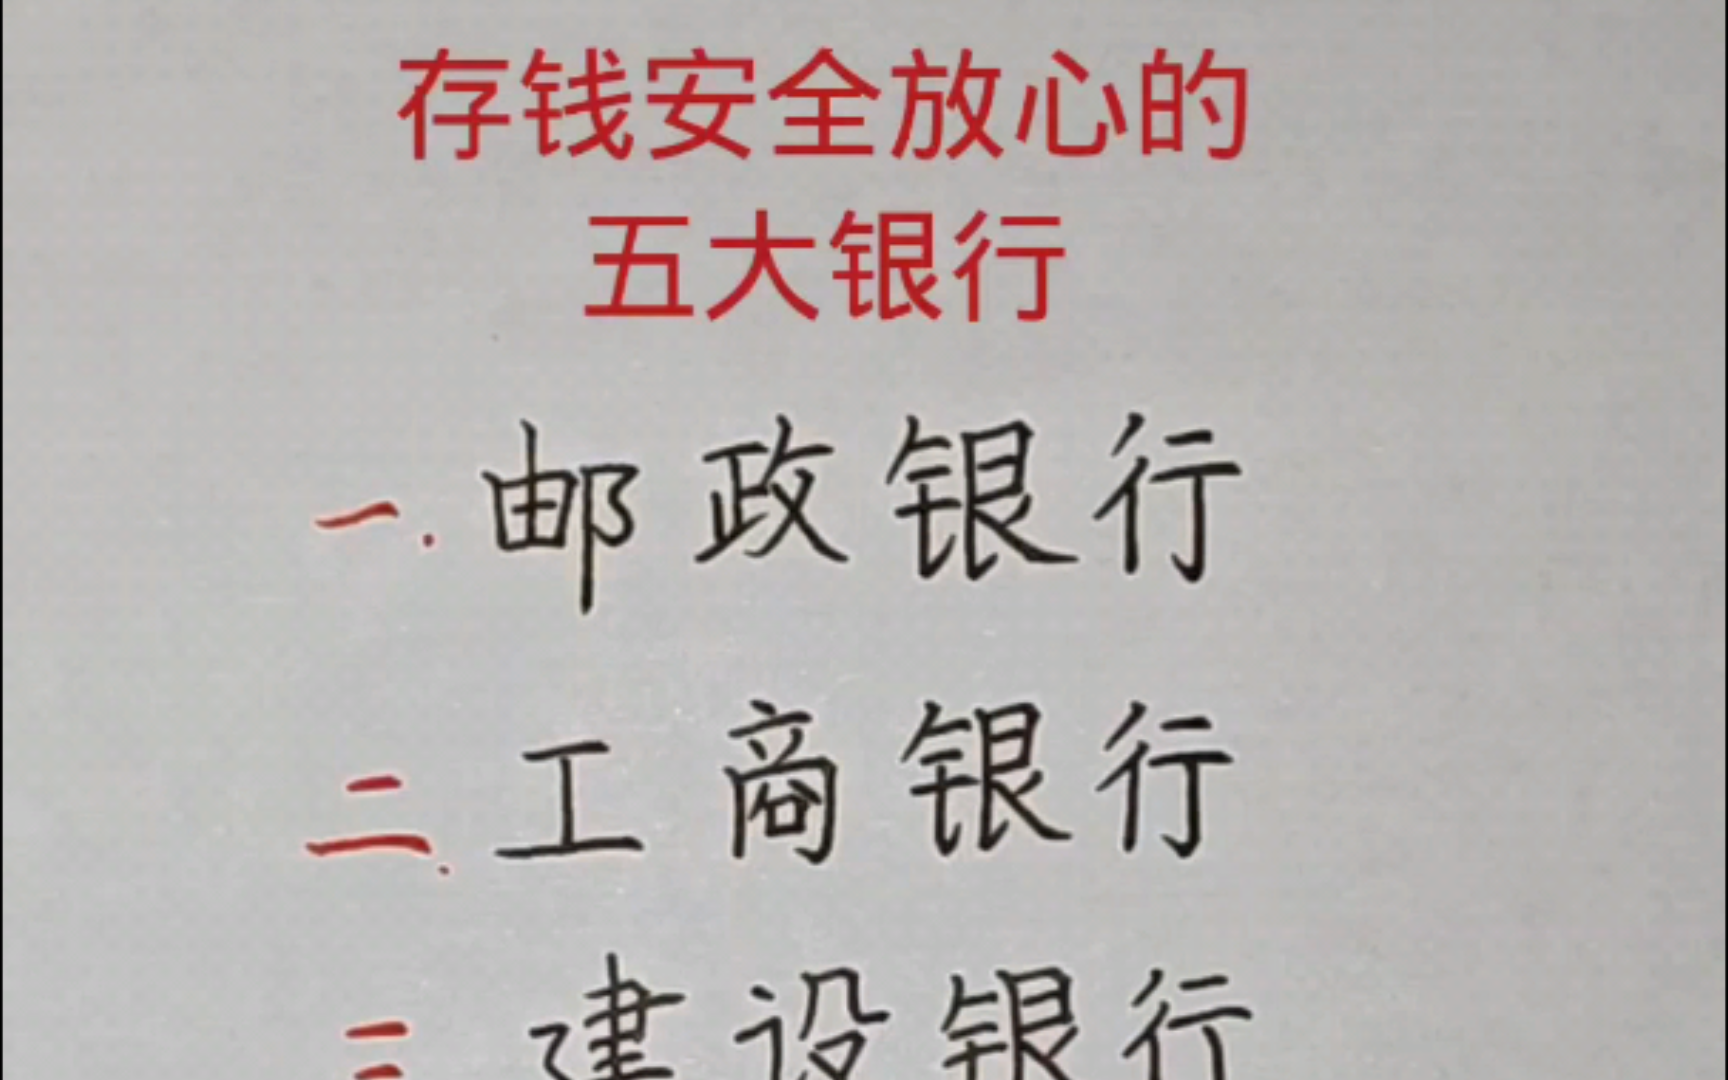 存钱安全放心的
五大银行
一.邮政银行
二.工商银行
三建设银行